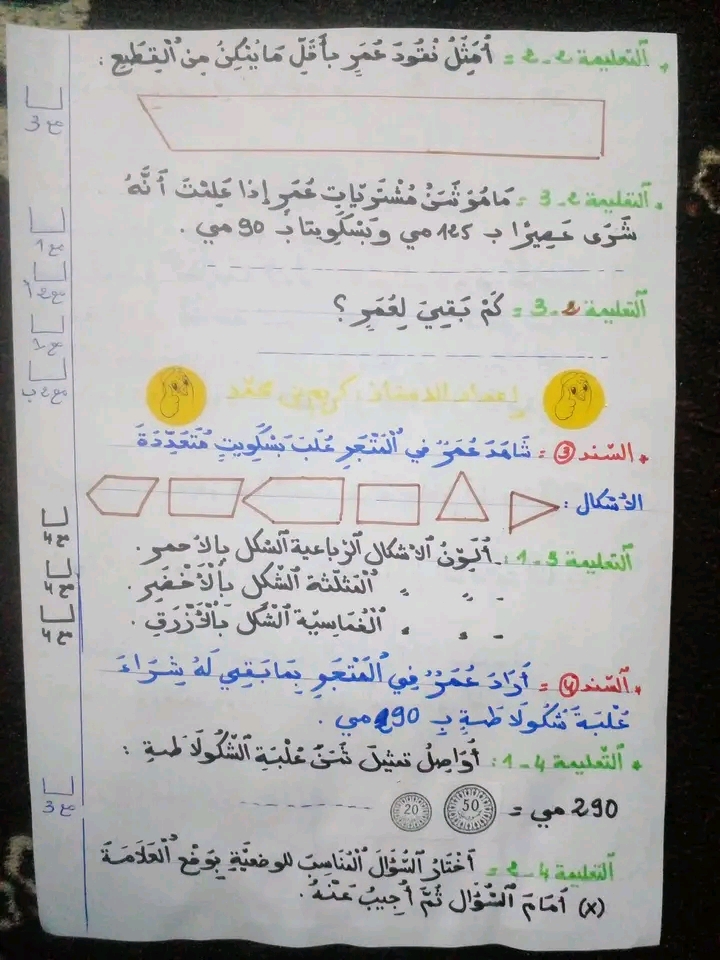 التعليمة 2-2 = أُمَثِّلُ نُقُودَ عُمَرِ بِأَقَلِّ مَا يُمْكِنُ مِنَ الْقِطَعِ :
مع 3
التعليمة 2-3 = مَا هُوَ ثَمَنُ مُشْتَرَيَاتِ عُمَرِ إِذَا عَلِمْتَ أَنَّهُ
شَرَى عَصِيرًا بـ 125 مي وَبَسْكَوِيتًا بـ 90 مي .
مع 1
مع 2 أ
التعليمة 2-3 = كَمْ بَقِيَ لِعُمَرِ ؟
مع 1
مع 2 ب
إعداد الأستاذ : كريم بن محمد
السند 3 = شَاهَدَ عُمَرُ فِي الْمَتْجَرِ عُلَبَ بَسْكَوِيتٍ مُتَعَدِّدَةَ
الأشكال :
التعليمة 3-1 : أُلَوِّنُ الأشكال الرباعية الشكل بالأحمر .
- " " المثلثة الشكل بِالْأَخْضَرِ .
- " " الْخُمَاسِيَّة الشَّكْل بِالْأَزْرَقِ .
مع 4
مع 4
مع 4
السند 4 = أَرَادَ عُمَرُ فِي الْمَتْجَرِ بِمَا بَقِيَ لَهُ شِرَاءَ
عُلْبَةَ شُكُولَاطَةٍ بـ 290 مي .
التعليمة 4-1 : أُوَاصِلُ تمثيل ثَمَنَ عُلْبَةِ الشُّكُولَاطَةِ :
290 مي = 50 20
مع 3
التعليمة 4-2 = أَخْتَارُ السُّؤَالَ الْمُنَاسِبَ للوضعيَّةِ بِوَضْعِ الْعَلَامَةَ
(x) أَمَامَ السُّؤَالِ ثُمَّ أُجِيبُ عَنْهُ .